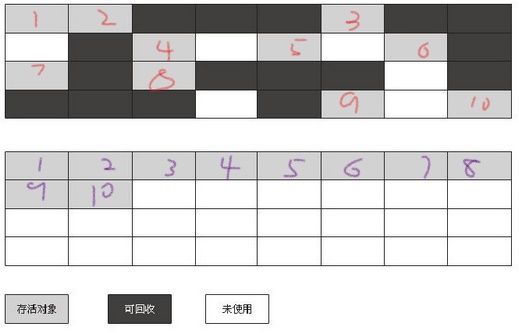 1 2 3
4 5 6
7 8
9 10
1 2 3 4 5 6 7 8
9 10
存活对象 可回收 未使用